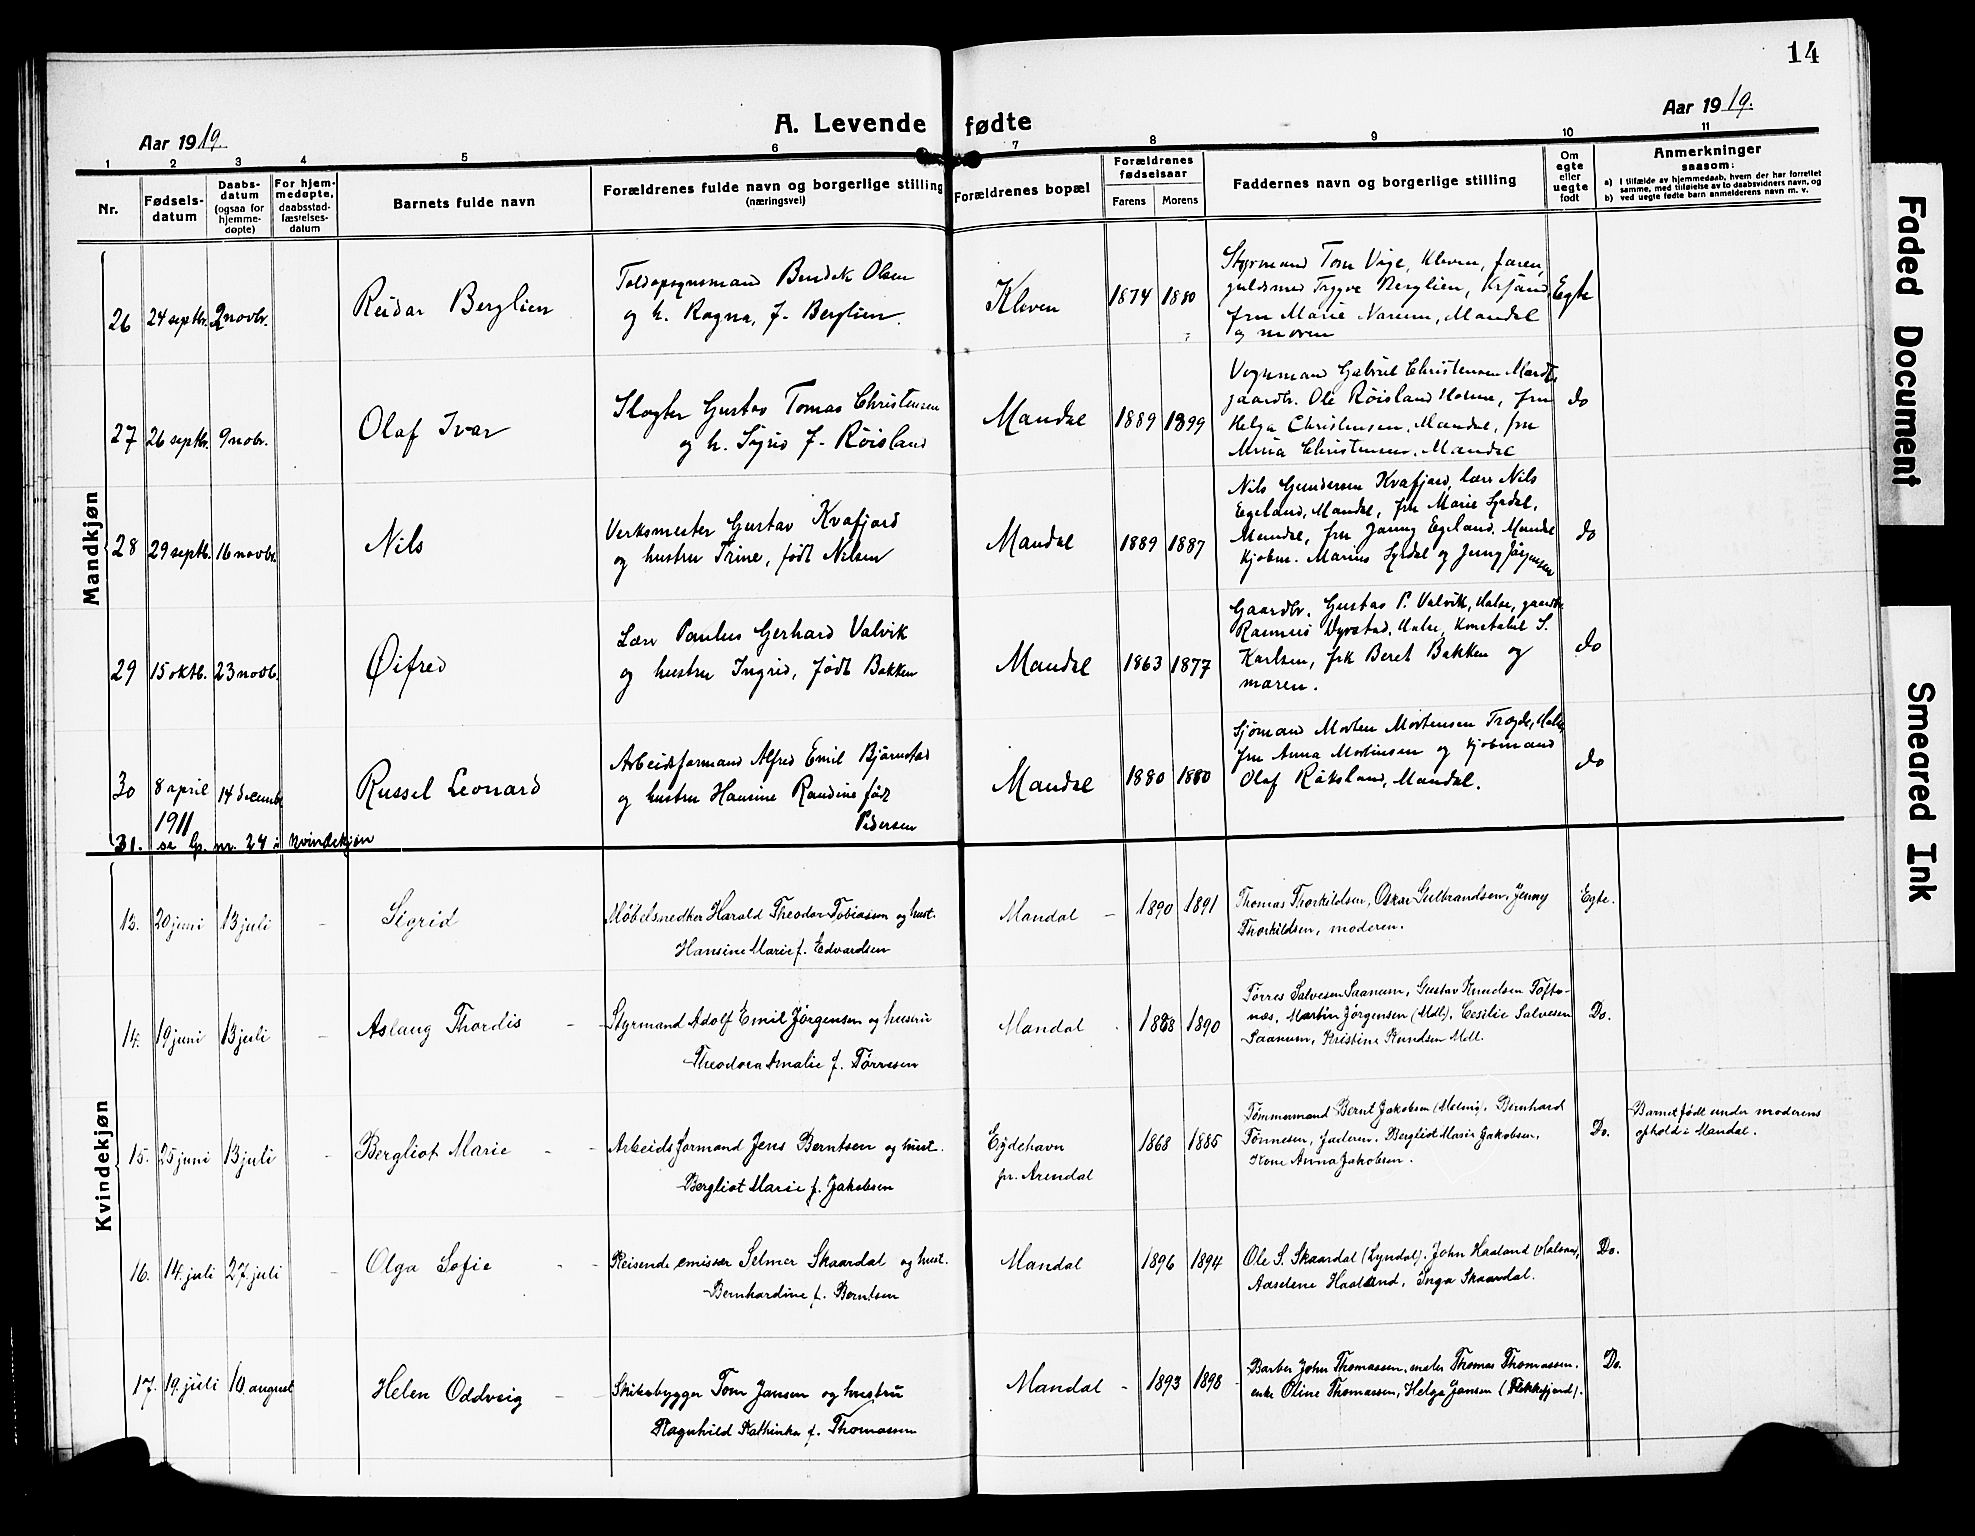 14
Aar 1919.
A. Levende fødte
Aar 1919.
1 2 3 4 5 6 7 8 9 10 11
Nr.
Fødsels-
datum
Daabs-
datum
(ogsaa for
hjemme-
døpte)
For hjem-
medøpte,
daabsstad-
fæstelses-
datum
Barnets fulde navn
Forældrenes fulde navn og borgerlige stilling
(næringsvei)
Forældrenes bopæl
Forældrenes
fødselsaar
Farens Morens
Faddernes navn og borgerlige stilling
Om
egte
eller
uegte
født
Anmerkninger
saasom:
a) I tilfælde av hjemmedaab, hvem der har forrettet
samme, med tilføielse av to daabsvidners navn, og
b) ved uegte fødte barn anmelderens navn m. v.
Mandkjøn
26 24 septbr. 2 novbr. Reidar Berglien
Toldopsynsmand Bendik Olsen
og h. Ragna, f. Berglien.
Kleven 1874 1880
Styrmand Tom Vige, Kleven, faren,
guldsmed Trygve Berglien, Krsand,
fru Marie Narum, Mandal
og moren
Egte
27 26 septbr. 9 nobr. Olaf Ivar
Slagter Gustav Tomas Christensen
og h. Sigrid f. Røisland
Mandal 1889 1899
Vognmand Gabriel Christensen Mandal,
gaardbr. Ole Røisland Holum, fru
Helga Christensen, Mandal, fru
Mina Christensen, Mandal
do
28 29 septb. 16 novbr. Nils
Verksmester Gustav Kvafjord
og hustru Trine, født Nilsen
Mandal 1889 1887
Nils Gundersen Kvafjord, lær. Nils
Egeland, Mandal, fru Marie Lyrdal,
Mandal, fru Janny Egeland, Mandal
kjøbm. Marius Lyrdal og Jenny Jørgensen
do
29 15 oktb. 23 novb. Øifred
Lær. Paulus Gerhard Valvik
og hustru Ingrid, født Bakken
Mandal 1863 1877
Gaardbr. Gustav P. Valvik, Halse, gaardbr.
Rasmus Dyrstad, Halse, konstabel S.
Karlsen, frk Beret Bakken og
moren.
do
30 8 april 1911 14 decembr Russel Leonard
Arbeidsformand Alfred Emil Bjørnstad
og hustru Hansine Randine født
Pedersen
Mandal 1880 1880
Sjømand Morten Mortensen Tregde, Halse,
fru Anna Mortensen og kjøbmand
Olaf Røksland, Mandal.
do
31. se lp. nr. 24 i kvindekjøn
Kvindekjøn
13. 20 juni 13 juli - Sigrid
Møbelsnedker Harald Theodor Tobiassen og hust.
Hansine Marie f. Edvardsen
Mandal - 1890 1891
Thomas Thorkildsen, Oskar Gulbrandsen, Jenny
Thorkildsen, moderen.
Egte.
14. 19 juni 13 juli - Aslaug Thordis -
Styrmand Adolf Emil Jørgensen og hustru
Theodora Amalie f. Tørresen
Mandal - 1888 1890
Tørres Salvesen Saanum, Gustav Knudsen Tofte-
næs, Martin Jørgensen (Mdl), Cecilie Salvesen
Saanum, Kristine Knudsen Mdl.
Do.
15. 25 juni 13 juli - Bergliot Marie - -
Arbeidsformand Jens Berntsen og hust.
Bergliot Marie f. Jakobsen
Eydehavn
pr. Arendal
1868 1885
Tømmermand Bernt Jakobsen (Malmø), Bernhard
Tønnesen, faderen, Bergliot Marie Jakobsen,
Kone Anna Jakobsen.
Do.
Barnet født under moderens
ophold i Mandal.
16. 14. juli 27. juli - Olga Sofie - -
Reisende emissær Selmer Skaardal og hust.
Bernhardine f. Berntsen
Mandal 1896 1894
Ole S. Skaardal (Lyndal). John Haaland (Halsaa),
Aaselene Haaland, Inga Skaardal.
Do.
17. 19. juli 10. august Helen Oddveig -
Skibsbygger Tom Jansen og hustru
Ragnhild Kathinka f. Thomassen
Mandal - 1893 1898
Barber John Thomassen, maler Thomas Thomassen,
enke Oline Thomassen, Helga Jansen (Flekkefjord).
Do.
Faded Document
Smeared Ink